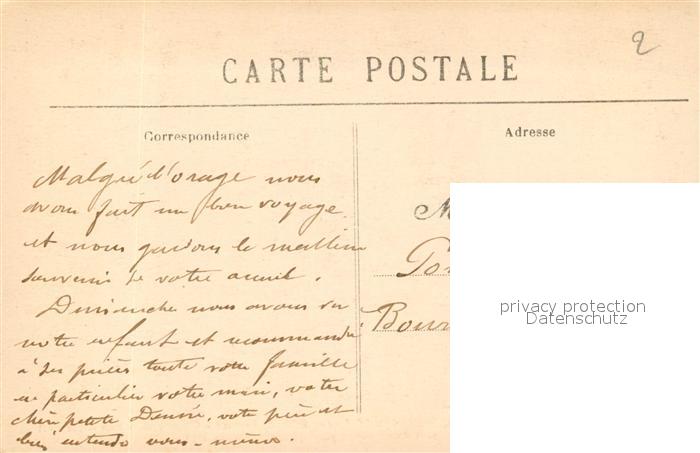 2
CARTE POSTALE
Correspondance
Adresse
Malgré l'orage nous
avons fait un bon voyage
et nous gardons le meilleur
souvenir de votre accueil.
Dimanche nous avons vu
votre enfant et recommandé
à ses prières toute votre famille
en particulier votre mari, votre
chère petite Denise, votre père et
bien entendu vous-même.
M
Bour
privacy protection
Datenschutz